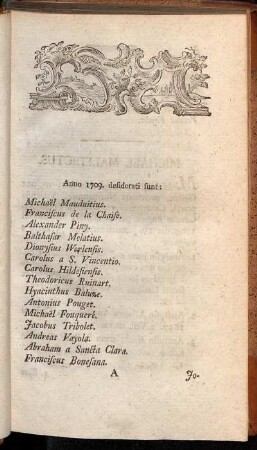 Anno 1709. desiderati sunt:
Michaël Mauduitius.
Franciscus de la Chaise.
Alexander Piny.
Balthasar Melatius.
Dionysius Werlensis.
Carolus a S. Vincentio.
Carolus Hildesiensis.
Theodoricus Ruinart.
Hyacinthus Baluze.
Antonius Pouget.
Michaël Fouqueré.
Jacobus Tribolet.
Andreas Vayola.
Abraham a Sancta Clara.
Franciscus Bonesana.
A
Jo-